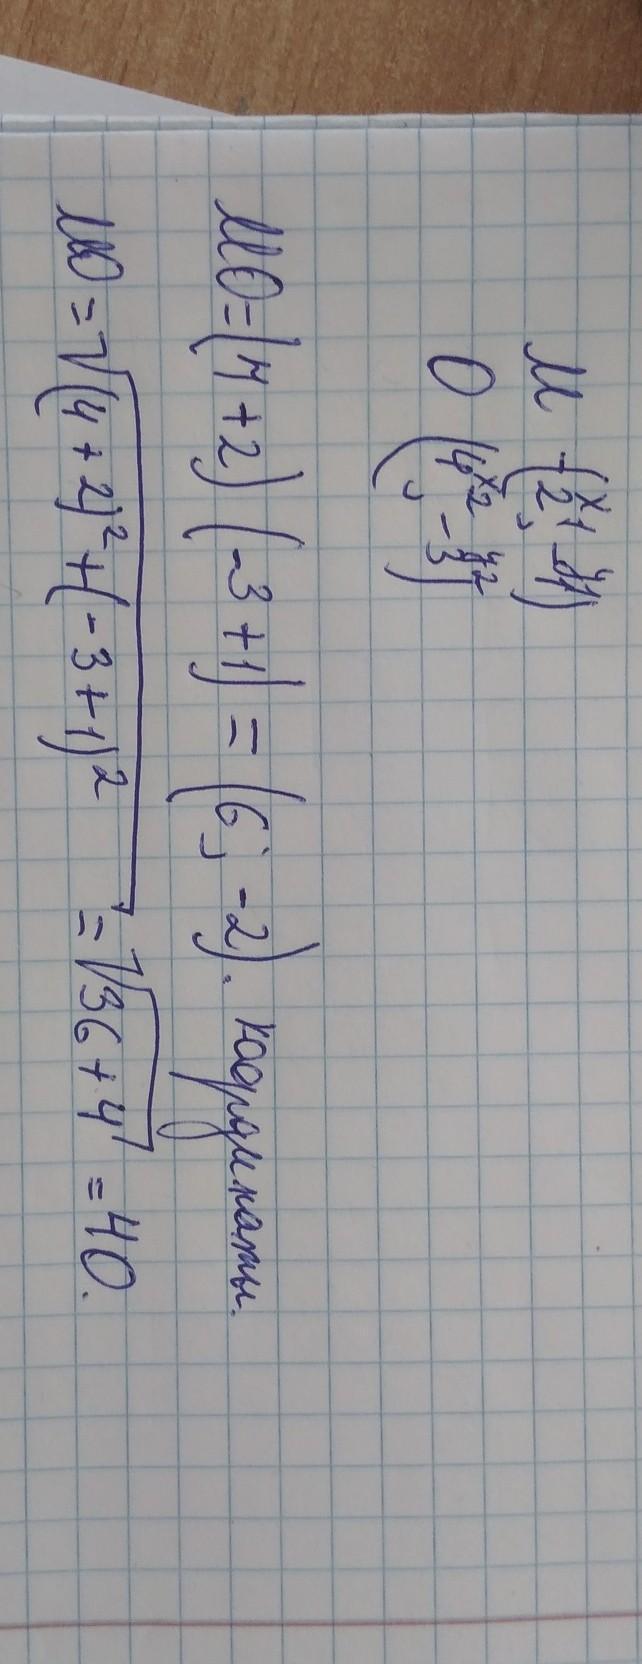 M (-2; -1)
x1 y1
O (4; -3)
x2 y2
MO = (4 + 2) (-3 + 1) = (6; -2). координаты.
MO = √(4 + 2)² + (-3 + 1)² = √36 + 4 = 40.